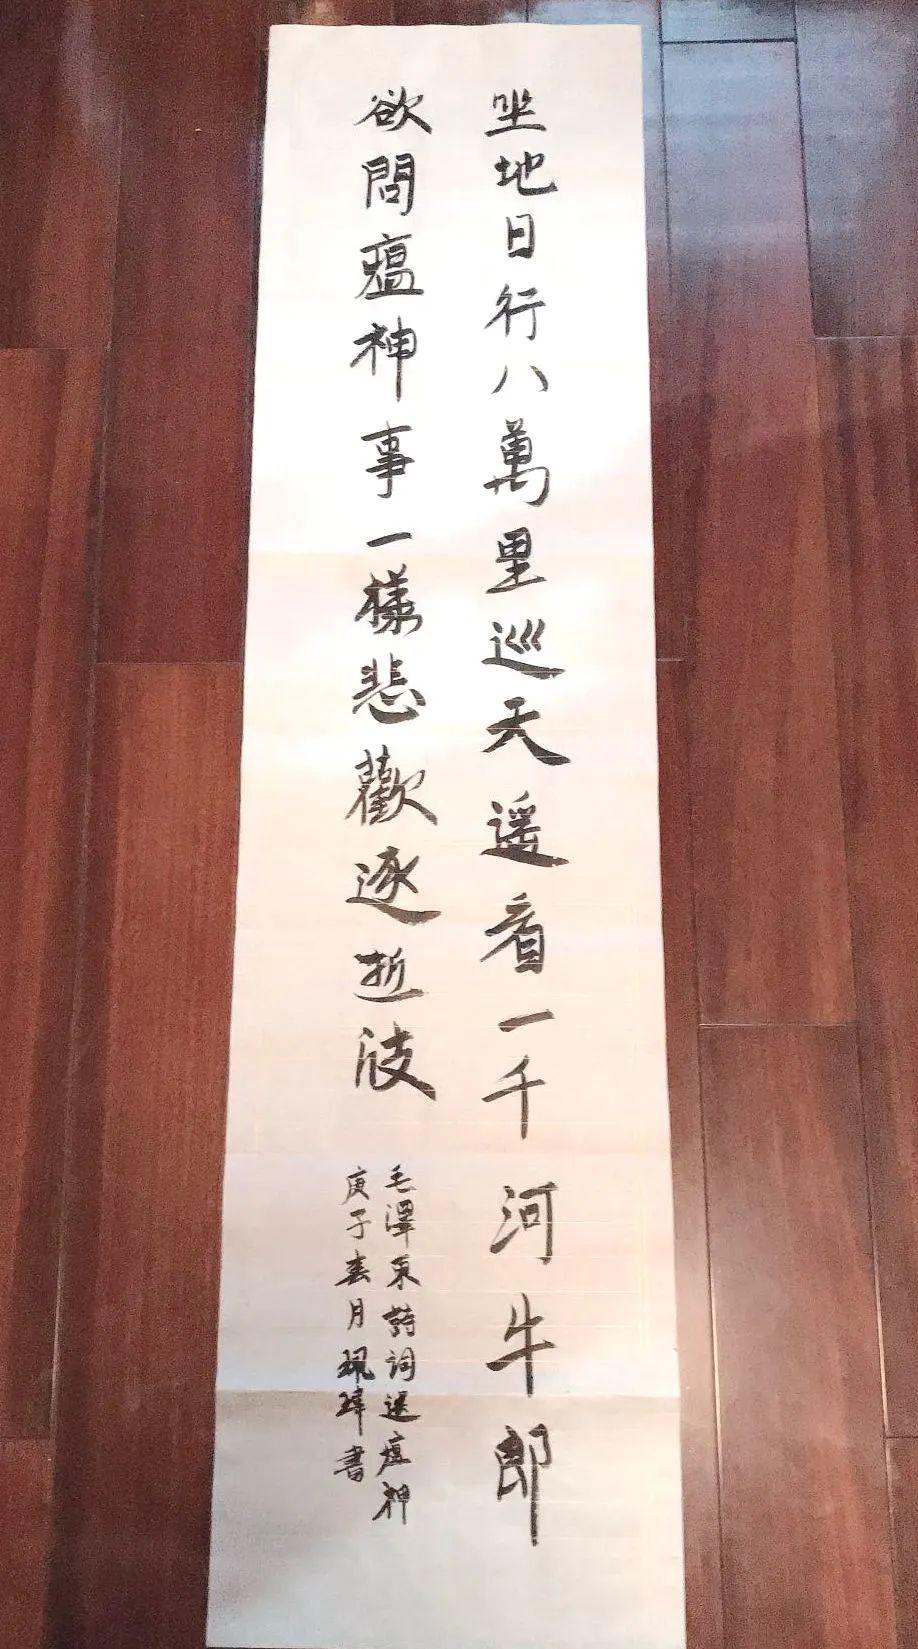 坐地日行八萬里巡天遥看一千河牛郎
欲問瘟神事一樣悲歡逐逝波
毛澤東詩詞送瘟神
庚子春月珮書